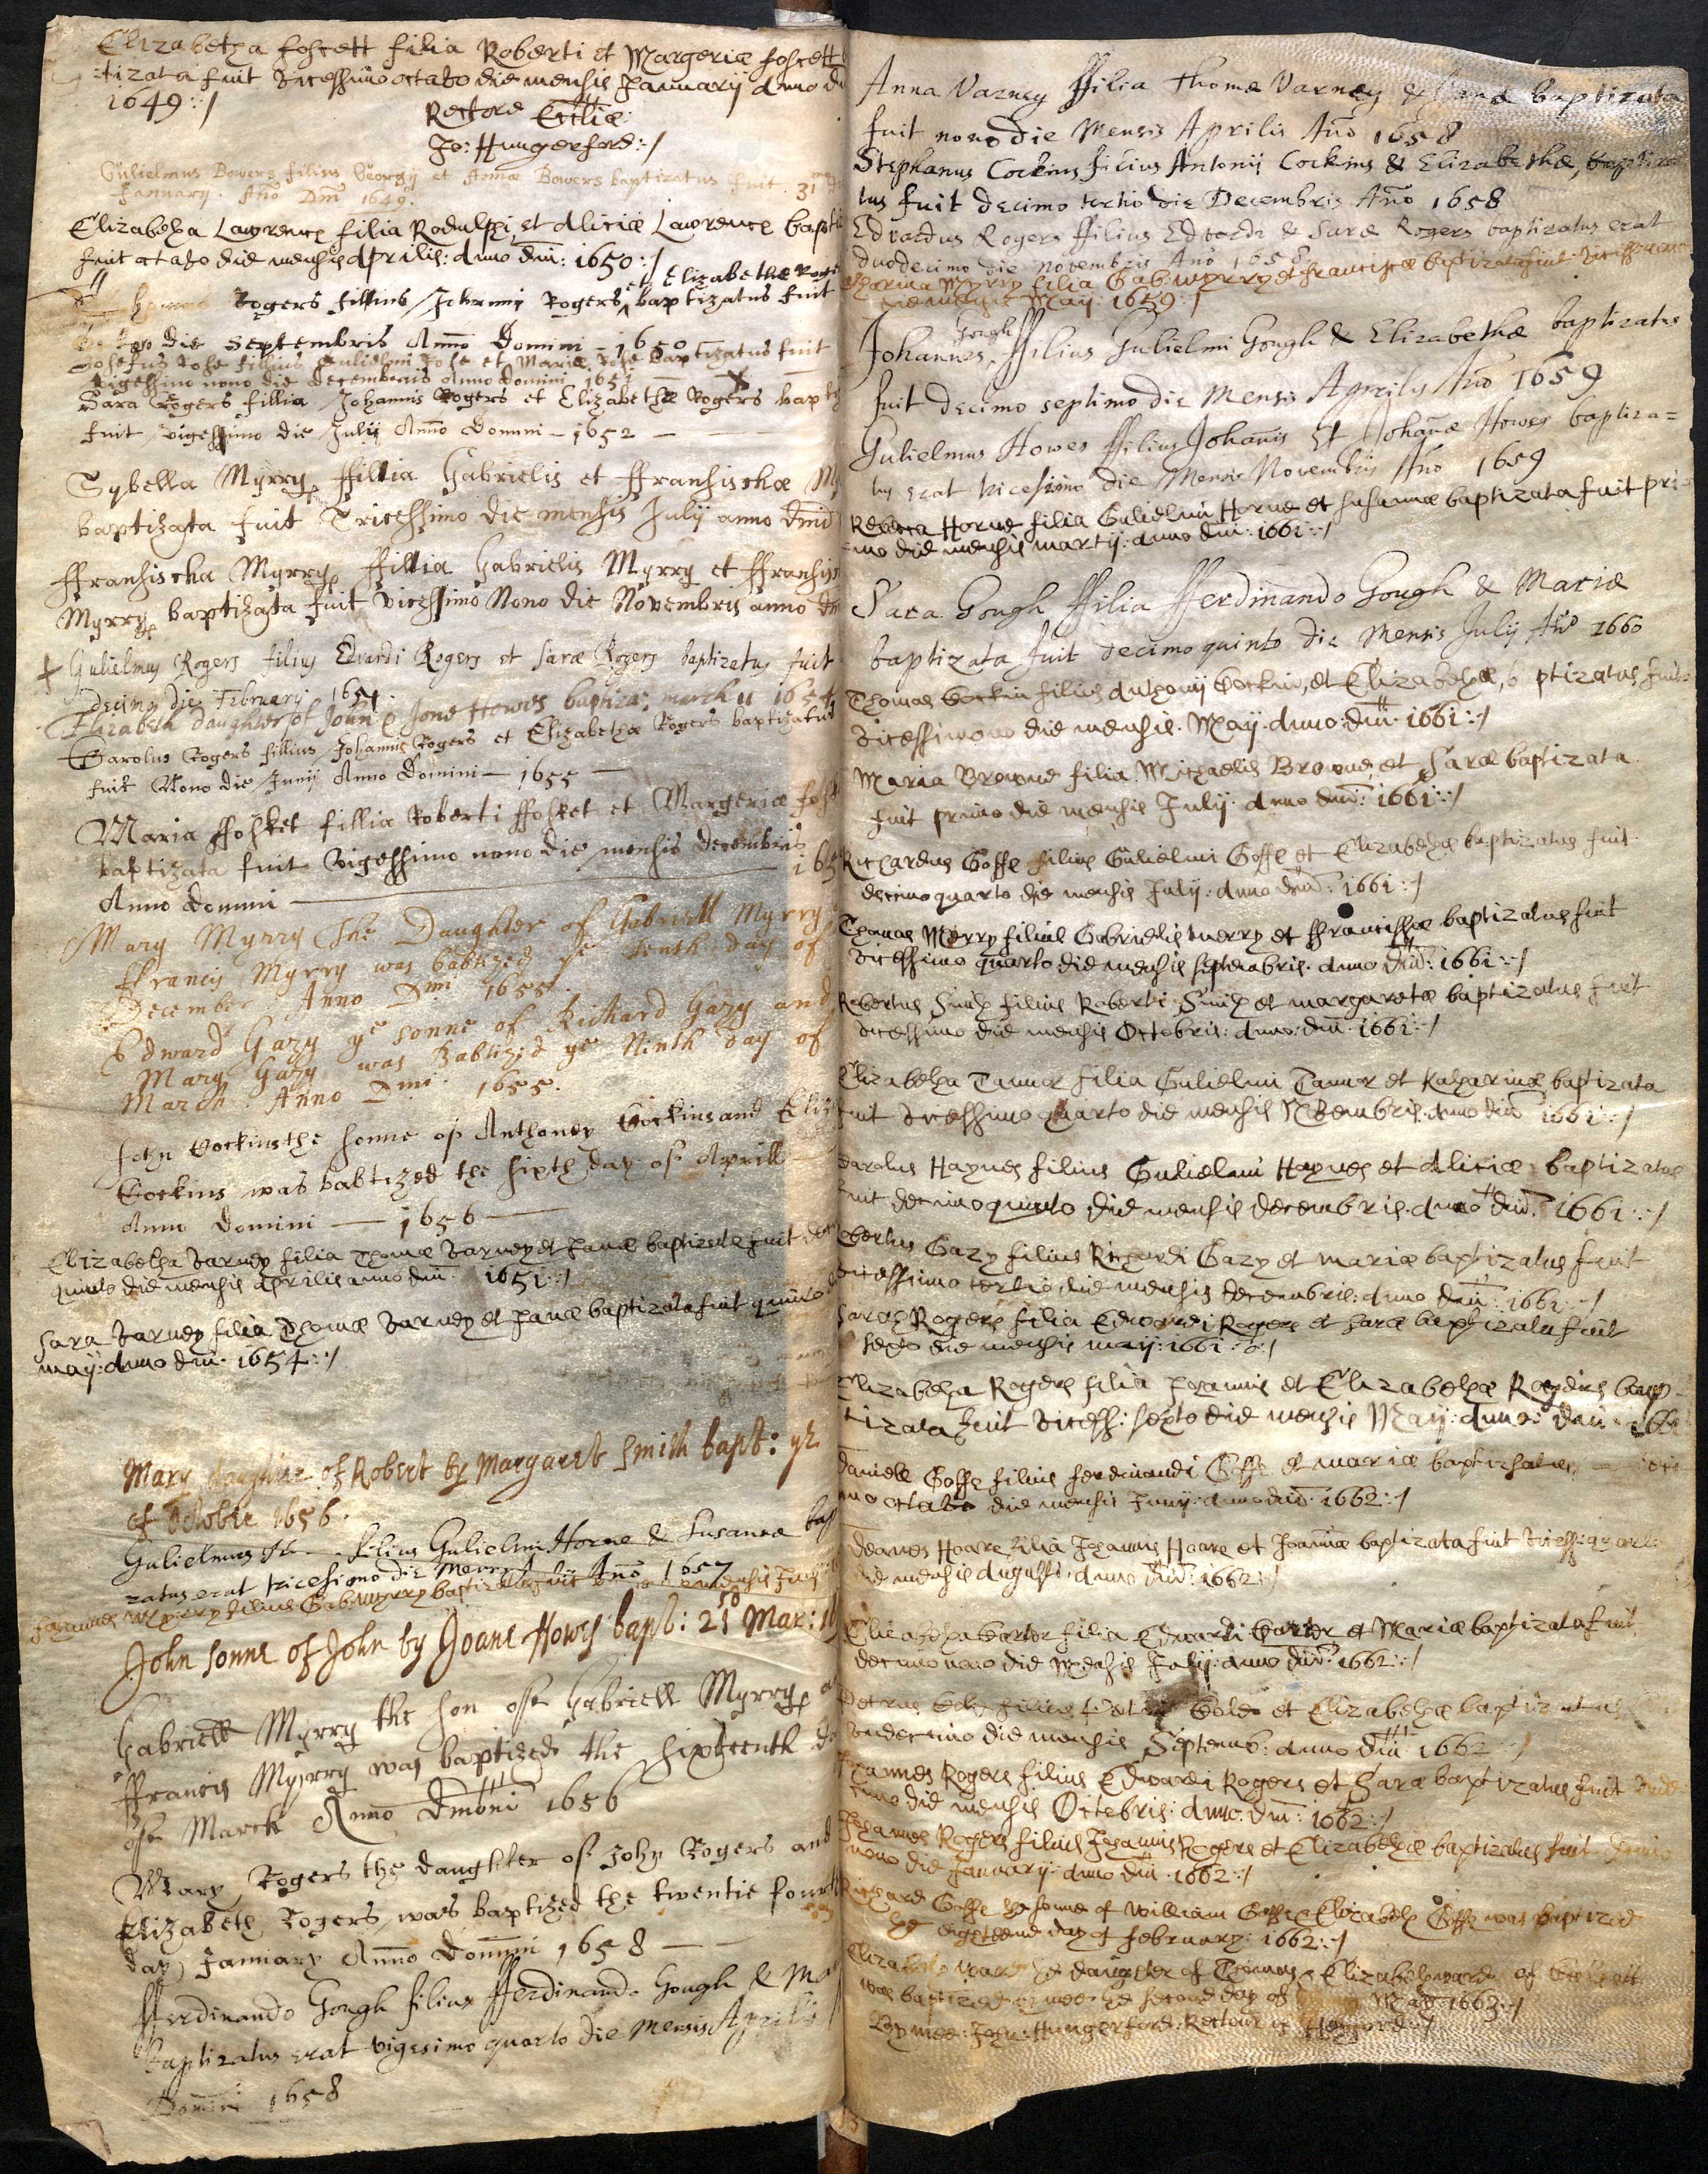 Elizabetha foscett filia Roberti et Margeriæ foscett
tizata fuit Vicessimo octavo die mensis Januarij Anno
1649:/
Rectore Ecctiæ:
Jo: Hungerford:/
Gulielmus Bowers filius Georgij et Annæ Bowers baptizatus fuit 31
January. Ano Dni 1649.
Elizabetha Lawrence filia Rodulphi et Aliciæ Lawrence bapti
fuit octavo die mensis Aprilis: Anno Dni: 1650:/
Rogers fillius Johannis Rogers et Elizabethæ Rogers baptizatus fuit
die Septembris Anno Domini - 1650
Josefus Rose fillius Gulielmi Rose et Mariæ Rose baptizatus fuit
Vigessimo nono die decembris Anno domini 1651
Sara Rogers fillia Johannis Rogers et Elizabethæ Rogers bapti
fuit vigessimo die Julij Anno Domini - 1652
Sybella Myrry ffillia Gabrielis et ffransischæ My
baptizata fuit Tricessimo die mensis July anno dmi
ffransischa Myrry ffillia Gabrielis Myrry et ffransis
Myrry baptizata fuit vicessimo Nono die Novembris anno
Gulielmus Rogers filius Edvardi Rogers et Saræ Rogers baptizatus fuit
decimo die February 1654.
Elizabeth daughter of John & Jone Howes baptiz: march 11 1654
Carolus Rogers fillius Johannis Rogers et Elizabethæ Rogers baptizatus
fuit Nono die Junij Anno Domini - 1655 -
Maria ffosket fillia Roberti ffosket et Margeriæ fos
baptizata fuit Vigessimo nono die mensis decembris
Anno Domini - 165
Mary Myrry the Daughter of Gabriell Myrry
ffrancis Myrry was babtized ye tenth day of
December Anno Dmi 1655.
Edward Gazy ye sonne of Richard Gazy and
Mary Gazy was Babtized ye Ninth day of
March Anno Dmi 1655.
John Cockins the sonne of Anthoney Cockins and Eliz
Cockins was babtized the sixth day of Aprill
Anno Domini - 1656 -
Elizabetha Varney filia Thomæ Varney et Janæ baptizata fuit
quinto die mensis Aprilis anno dni: 1651:/
Sara Varney filia Thomæ Varney et Janæ baptizata fuit quinto
may: Anno Dni: 1654:/
Mary daughter of Robert by Margaret Smith bapt: ye
of October 1656.
Gulielmus filius Gulielmi Horne & Susannæ bap
ratus erat vicesimo die Ano 1657
Johannes Myrry filius Gab: Myrry
John sonne of John by Joane Howes bapt: 21 Mar:
Gabriell Myrry the son of Gabriell Myrry
ffrancis Myrry was baptized the sixteenth
of March Anno Dmoni 1656
Mary Rogers the daughter of John Rogers and
Elizabeth Rogers was baptized the twentie fourth
day January Anno Domini 1658
fferdinando Gough filius fferdinando Gough & Ma
Baptizatus erat vigesimo quarto die Mensis Aprilis
Domini 1658
Anna Varney ffilia Thomæ Varney & Janæ baptizata
fuit nono die Mensis Aprilis Ano 1658
Stephanus Cockins filius Antonij Cockins & Elizabethæ, baptiza
tus fuit decimo tertio die Decembris Ano 1658
Edvardus Rogers ffilius Edvardi & Saræ Rogers baptizatus erat
duodecimo die Novembris Ano 1658
Myrry filia Gab: Myrry et franciscæ baptizata fuit
die mensis May: 1659:/
Johannes Gough ffilius Gulielmi Gough & Elizabethæ baptizatus
fuit decimo septimo die Mensis Aprily Ano 1659
Gulielmus Howes ffilius Johanis Et Johanæ Howes baptiza=
tus erat vicesimo die Mensis Novembris Ano 1659
Rebecca Horne filia Gulielmi Horne et Susannæ baptizata fuit pri-
mo die mensis martij: Anno Dni: 1661:/
Sara Gough ffilia fferdinando Gough & Mariæ
baptizata fuit decimo quinto die Mensis July Ano 1660
Thomas Cockin filius Anthonij Cockin, et Elizabethæ, ptizatus fuit
Vicessimo die mensis May: Anno: Dni: 1661:/
Maria Browne filia Michaelis Browne et Saræ baptizata
fuit primo die mensis Julij: Anno Dni: 1661:/
Richardus Goffe filius Gulielmi Goffe et Elizabethæ baptizatus fuit
decimoquarto die mensis Julij: Anno Dni: 1661:/
Thomas Merry filius Gabrielis Merry et ffranciscæ baptizatus fuit
Vicessimo quarto die mensis septembris. Anno Dni: 1661:/
Robertus Smith filius Roberti Smith et margaretæ baptizatus fuit
Vicessimo die mensis Octobris: Anno: Dni: 1661:/
Elizabetha Tanner filia Gulielmi Tanner et Katharinæ baptizata
fuit Vicessimo quarto die mensis Novembris. Anno Dni 1661:/
Carolus Haynes filius Gulielmi Haynes et Aliciæ baptizatus
fuit decimoquinto die mensis decembris. Anno Dni: 1661:/
Gazy filius Richardi Gazy et mariæ baptizatus fuit
Vicessimo tertio die mensis decembris: Anno Dni: 1661:/
Sarah Rogers filia Edwardi Rogers et Saræ baptizata fuit
die mensis maij: 1661:/
Elizabetha Rogers filia Johannis et Elizabethæ Rogers bap-
tizata fuit Vicess: sexto die mensis Maij: Anno: Dni:
Daniell Goffe filius ferdinandi Goffe et mariæ baptizatus
mo octavo die mensis Junij: Anno Dni: 1662:/
Hoare filia Johannis Hoare et Joannæ baptizata fuit Vicess: quarto
die mensis Augusti: Anno Dni: 1662:/
Elizabetha Carter filia Edwardi Carter et Mariæ baptizata fuit
decimo nono die Mensis Julij: Anno Dni: 1662:/
Petrus filius Cole et Elizabethæ baptizatus
Vndecimo die mensis Septemb: Anno Dni 1662:/
Johannes Rogers filius Edwardi Rogers et Saræ baptizatus fuit
die mensis Octobris: Anno: Dni: 1662:/
Johannes Rogers filius Johannis Rogers et Elizabethæ baptizatus fuit
nono die January: Anno Dni: 1662:/
Richard Goffe the sonne of William Goffe & Elizabeth Goffe was baptized
the eighteene day of february: 1662:/
Elizabeth ward the daughter of Thomas & Elizabeth ward of
was baptized by mee the second day of May 1663:/
By mee: John: Hungerford: Rectour of